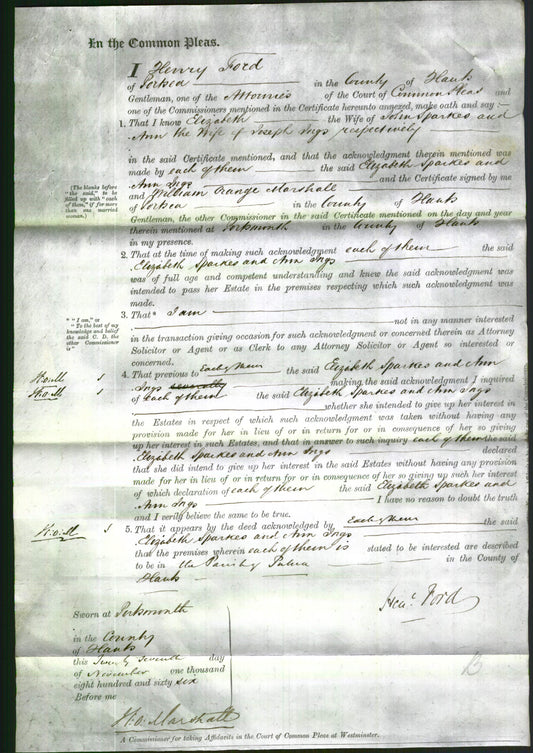 In the Common Pleas.
I Henry Ford
of Portsea in the County of Hants
Gentleman, one of the Attornies of the Court of Common Pleas and
one of the Commissioners mentioned in the Certificate hereunto annexed, make oath and say :—
1. That I know Elizabeth the Wife of John Sparkes and
Ann the Wife of Joseph Ings respectively
in the said Certificate mentioned, and that the acknowledgment therein mentioned was
made by each of them the said Elizabeth Sparkes and
Ann Ings and the Certificate signed by me
and William Orange Marshall
of Portsea in the County of Hants
Gentleman, the other Commissioner in the said Certificate mentioned on the day and year
therein mentioned at Portsmouth in the County of Hants
in my presence.
(The blanks before
"the said," to be
filled up with "each
of them," if for more
than one married
woman.)
2. That at the time of making such acknowledgment each of them the said
Elizabeth Sparkes and Ann Ings
was of full age and competent understanding and knew the said acknowledgment was
intended to pass her Estate in the premises respecting which such acknowledgment was
made.
3. That* I am
not in any manner interested
in the transaction giving occasion for such acknowledgment or concerned therein as Attorney
Solicitor or Agent or as Clerk to any Attorney Solicitor or Agent so interested or
concerned.
* "I am," or
"To the best of my
knowledge and belief
the said C. D. the
other Commissioner
is"
4. That previous to Each of them the said Elizabeth Sparkes and Ann
Ings severally making the said acknowledgment I inquired
of each of them the said Elizabeth Sparkes and Ann Ings
whether she intended to give up her interest in
the Estates in respect of which such acknowledgment was taken without having any
provision made for her in lieu of or in return for or in consequence of her so giving
up her interest in such Estates, and that in answer to such inquiry each of them the said
Elizabeth Sparkes and Ann Ings declared
that she did intend to give up her interest in the said Estates without having any provision
made for her in lieu of or in return for or in consequence of her so giving up such her interest
of which declaration of each of them the said Elizabeth Sparkes and
Ann Ings I have no reason to doubt the truth
and I verily believe the same to be true.
W.O.M
W.O.M
5. That it appears by the deed acknowledged by Each of them the said
Elizabeth Sparkes and Ann Ings
that the premises wherein each of them is stated to be interested are described
to be in the Parish of in the County of
Hants
W.O.M
Heny. Ford
Sworn at Portsmouth
in the County
of Hants
this Twenty Seventh day
of November one thousand
eight hundred and sixty six
Before me
W.O. Marshall
A Commissioner for taking Affidavits in the Court of Common Pleas at Westminster.